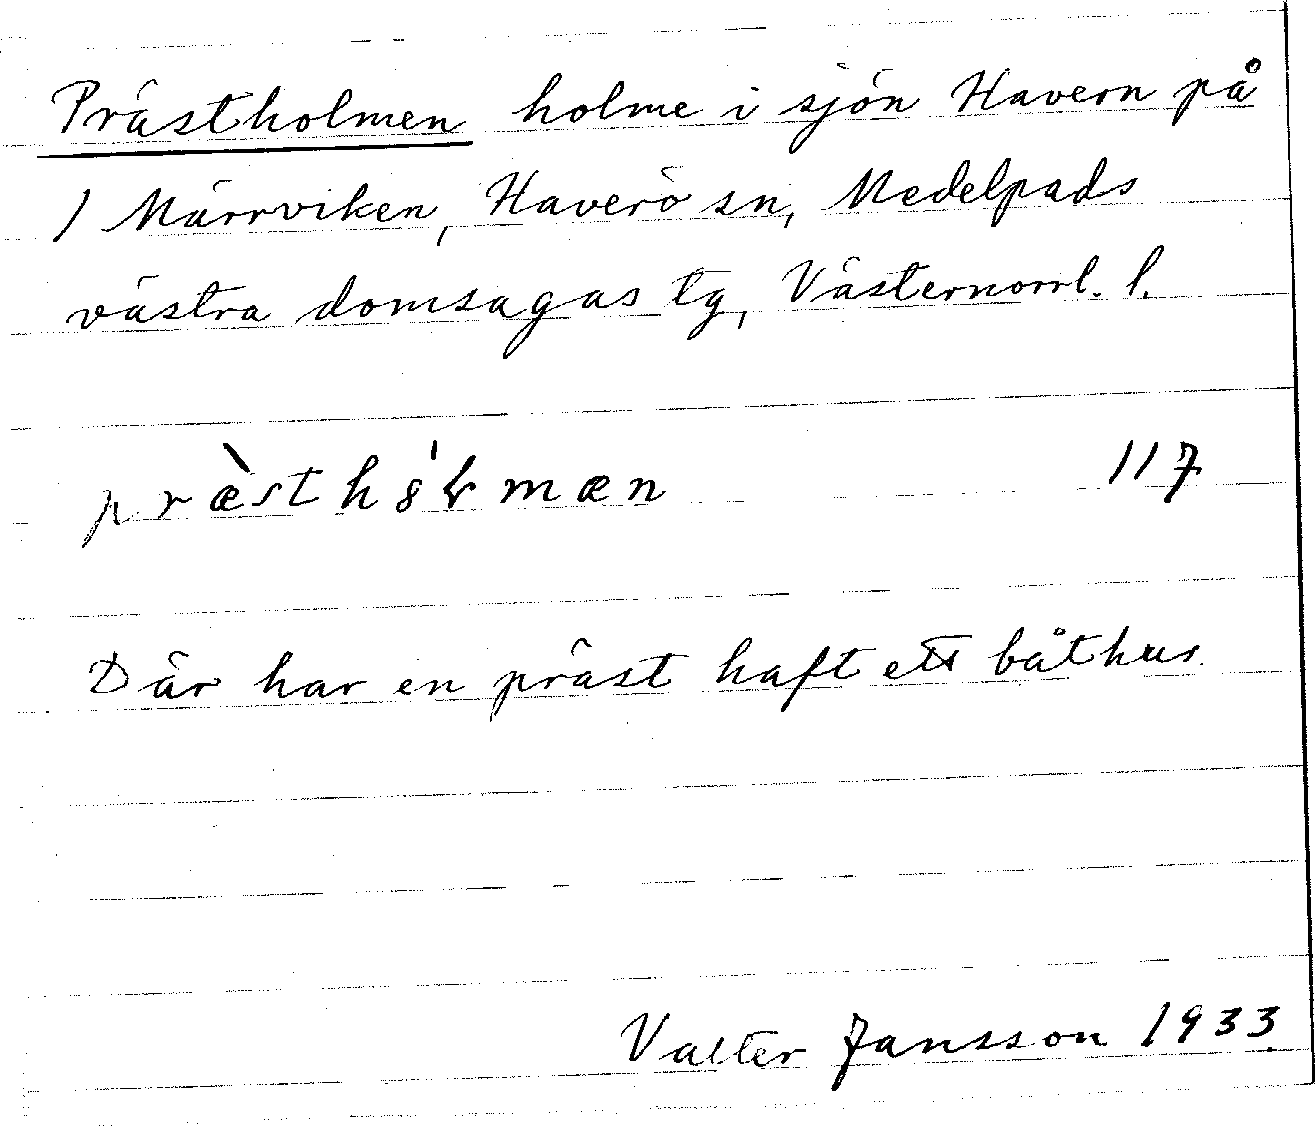 Prästholmen holme i sjön Havern på
1 Märrviken, Haverö sn, Medelpads
västra domsagas tg, Västernorrl. l.
117
Där har en präst haft ett båthus
Valter Jansson 1933.